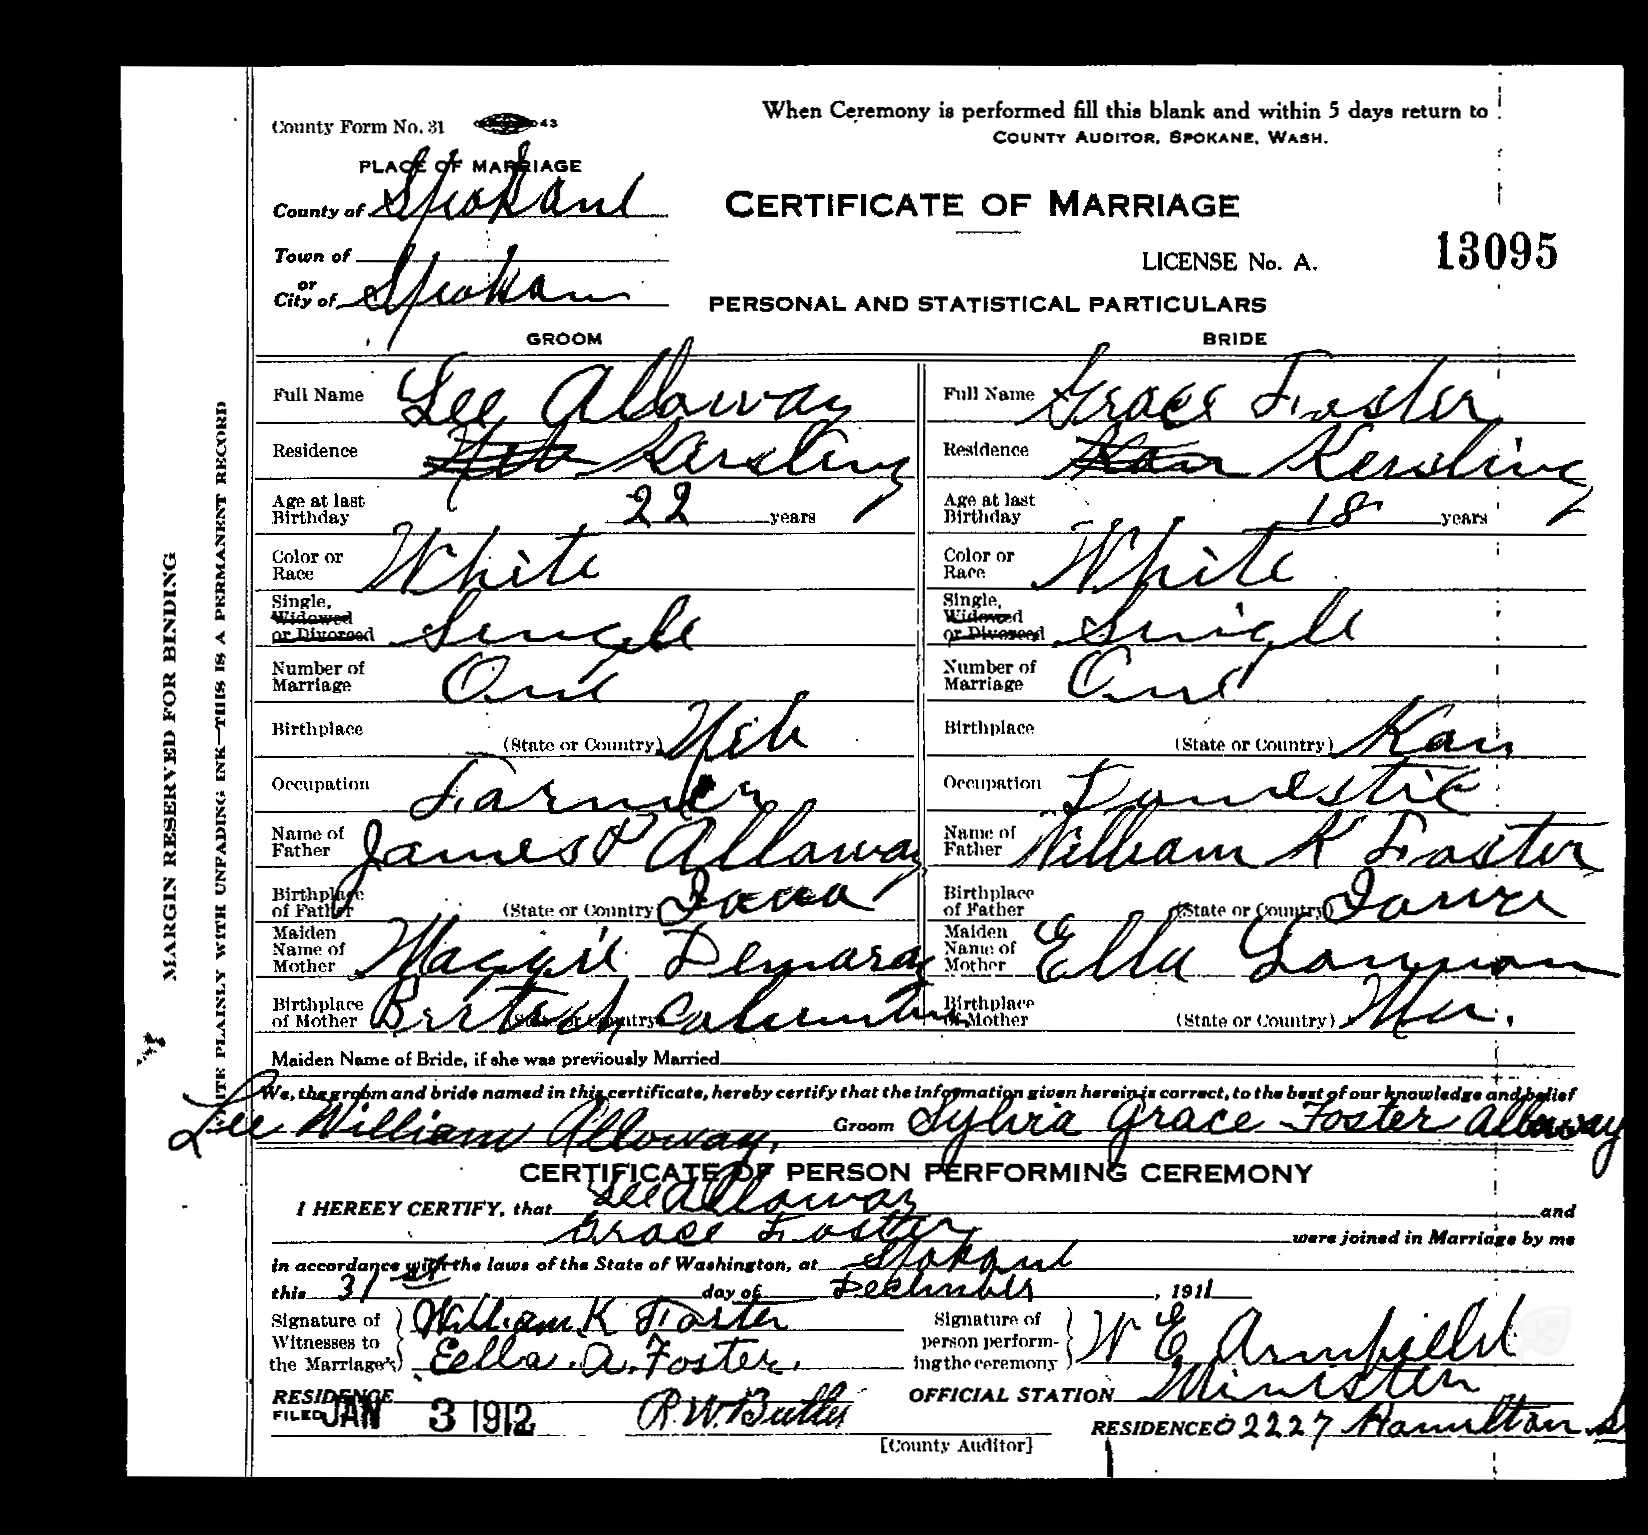 County Form No. 31 43
When Ceremony is performed fill this blank and within 5 days return to
COUNTY AUDITOR, SPOKANE, WASH.
PLACE OF MARRIAGE
County of Spokane
CERTIFICATE OF MARRIAGE
Town of
or
City of Spokane
LICENSE No. A. 13095
PERSONAL AND STATISTICAL PARTICULARS
GROOM BRIDE
Full Name Lee Alloway Full Name Grace Foster
Residence Neb Kersling Residence Kan Kersling
Age at last Birthday 22 years Age at last Birthday 18 years
Color or Race White Color or Race White
Single, Widowed or Divorced Single Single, Widowed or Divorced Single
Number of Marriage One Number of Marriage One
Birthplace (State or Country) Neb Birthplace (State or Country) Kan
Occupation Farmer Occupation Domestic
Name of Father James P Alloway Name of Father William K Foster
Birthplace of Father (State or Country) Iowa Birthplace of Father (State or Country) Iowa
Maiden Name of Mother Maggie Demaray Maiden Name of Mother Ella
Birthplace of Mother (State or Country) British Columbia Birthplace of Mother (State or Country)
Maiden Name of Bride, if she was previously Married
We, the groom and bride named in this certificate, hereby certify that the information given herein is correct, to the best of our knowledge and belief
Lee William Alloway. Groom Sylvia Grace Foster Alloway
CERTIFICATE OF PERSON PERFORMING CEREMONY
I HEREEY CERTIFY, that Lee Alloway and
Grace Foster were joined in Marriage by me
in accordance with the laws of the State of Washington, at Spokane
this 31st day of December, 1911
Signature of Witnesses to the Marriage William K Foster
Eella. A. Foster.
Signature of person performing the ceremony W E Armfield
RESIDENCE OFFICIAL STATION Minister
FILED JAN 3 1912 R.W. Butler RESIDENCE 02227 Hamilton S
[County Auditor]
MARGIN RESERVED FOR BINDING
WRITE PLAINLY WITH UNFADING INK—THIS IS A PERMANENT RECORD